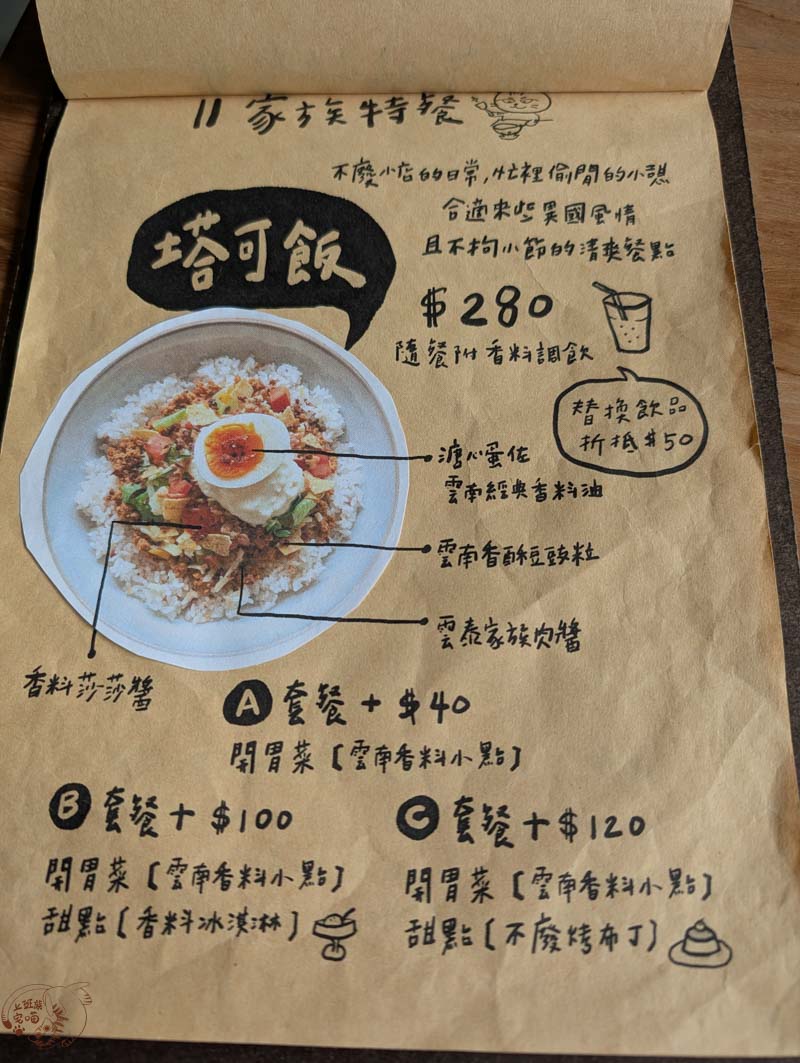 11 家族特餐
不廢小店的日常,忙裡偷閒的小憩
合適來些異國風情
且不拘小節的清爽餐點
塔可飯
$280
隨餐附香料調飲
替換飲品
折抵$50
溏心蛋佐
雲南經典香料油
雲南香酥豆豉粒
雲泰家族肉醬
香料莎莎醬
A 套餐+$40
開胃菜[雲南香料小點]
B 套餐+$100
開胃菜[雲南香料小點]
甜點[香料冰淇淋]
C 套餐+$120
開胃菜[雲南香料小點]
甜點[不廢烤布丁]
上班族
宅喵